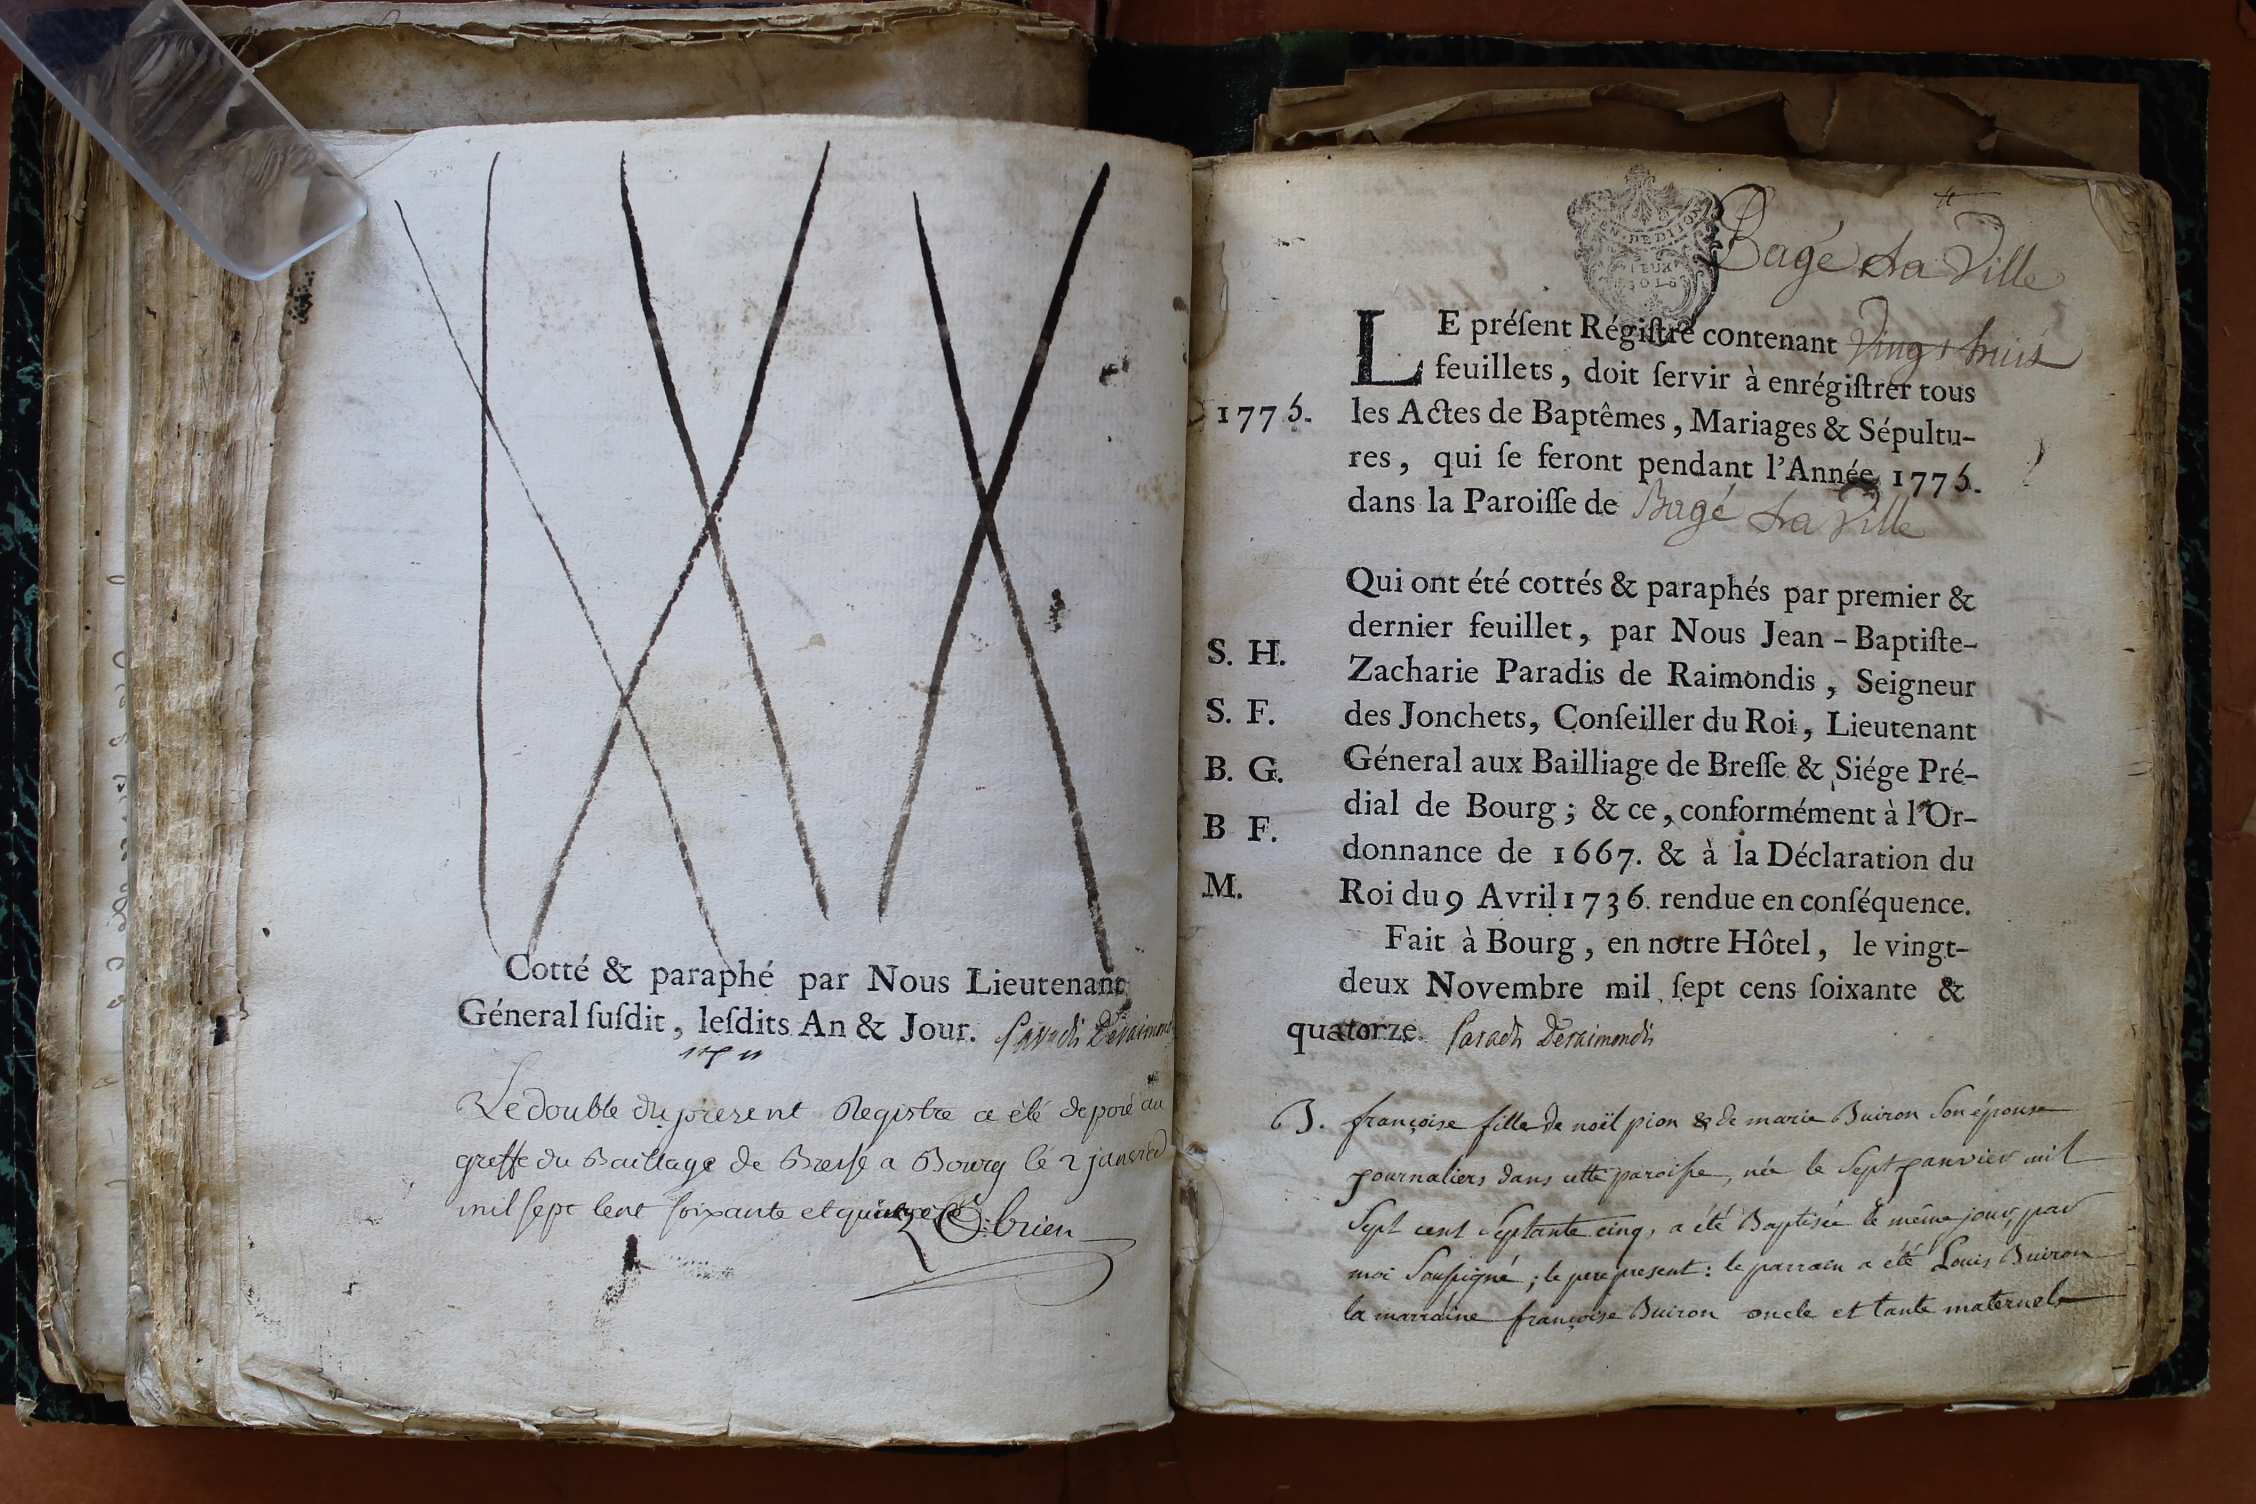 Cotté & paraphé par Nous Lieutenant
Géneral ſuſdit, leſdits An & Jour. Paradis Deraimondis
Le double du present Registre a été deposé au
greffe du Bailliage de Bresse a Bourg le 2 janvier
mil sept cent soixante et quinze
EN. DE DIJON
DEUX
SOLS
Bagé La Ville
LE préſent Régiſtre contenant Vingt huit
feuillets, doit ſervir à enrégiſtrer tous
1775. les Actes de Baptêmes, Mariages & Sépultu-
res, qui ſe feront pendant l'Année 1775.
dans la Paroiſſe de Bagé La Ville
Qui ont été cottés & paraphés par premier &
dernier feuillet, par Nous Jean-Baptiſte-
S. H. Zacharie Paradis de Raimondis, Seigneur
S. F. des Jonchets, Conſeiller du Roi, Lieutenant
B. G. Géneral aux Bailliage de Breſſe & Siége Pré-
B F. dial de Bourg; & ce, conformément à l'Or-
donnance de 1667. & à la Déclaration du
M. Roi du 9 Avril 1736. rendue en conſéquence.
Fait à Bourg, en notre Hôtel, le vingt-
deux Novembre mil ſept cens ſoixante &
quatorze. Paradis Deraimondis
B. françoise fille de noël pion & de marie Buiron son épouse
journaliers dans cette paroisse, née le sept janvier mil
sept cent septante cinq, a été Baptisée le même jour, par
moi soussigné; le pere present: le parrain a été Louis Buiron
la marraine françoise Buiron oncle et tante maternels